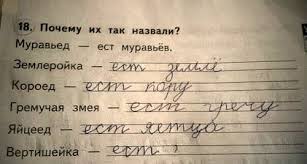 18. Почему их так назвали?
Муравьед — ест муравьёв.
Землеройка — ест землё
Короед — ест пору
Гремучая змея — ест гречу
Яйцеед — ест яетца
Вертишейка — ест